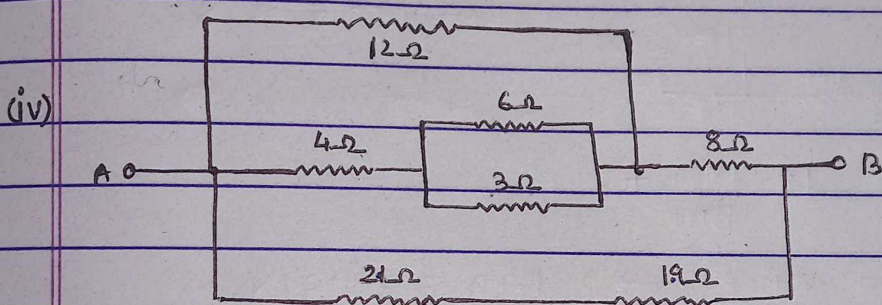 12Ω
(iv)
6Ω
4Ω
8Ω
A
B
3Ω
21Ω
19Ω